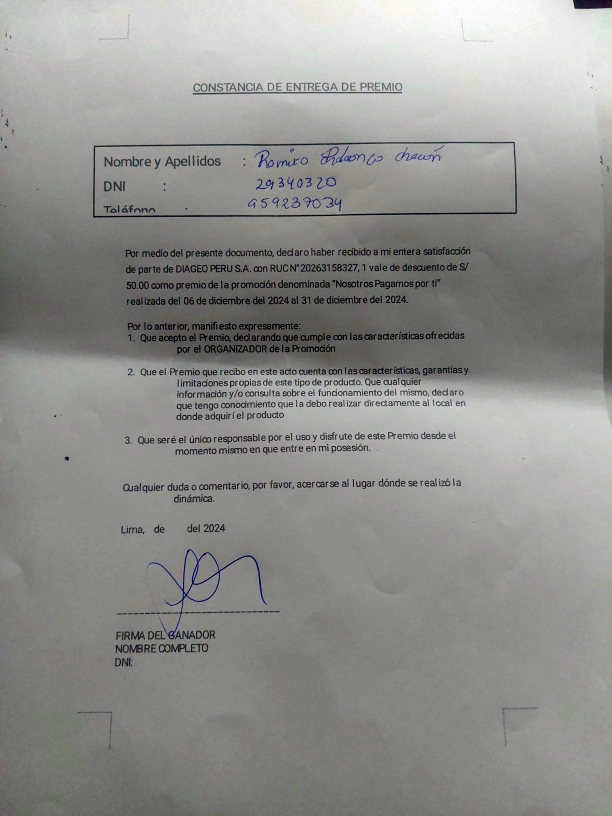 CONSTANCIA DE ENTREGA DE PREMIO
Nombre y Apellidos : Ramiro chacón
DNI : 29340320
Teléfono : 959237034
Por medio del presente documento, declaro haber recibido a mi entera satisfacción
de parte de DIAGEO PERU S.A. con RUC N° 20263158327, 1 vale de descuento de S/
50.00 como premio de la promoción denominada "Nosotros Pagamos por ti"
realizada del 06 de diciembre del 2024 al 31 de diciembre del 2024.
Por lo anterior, manifiesto expresamente:
1. Que acepto el Premio, declarando que cumple con las características ofrecidas
por el ORGANIZADOR de la Promoción
2. Que el Premio que recibo en este acto cuenta con las características, garantías y
limitaciones propias de este tipo de producto. Que cualquier
información y/o consulta sobre el funcionamiento del mismo, declaro
que tengo conocimiento que la debo realizar directamente al local en
donde adquirí el producto
3. Que seré el único responsable por el uso y disfrute de este Premio desde el
momento mismo en que entre en mi posesión.
Cualquier duda o comentario, por favor, acercarse al lugar dónde se realizó la
dinámica.
Lima, de del 2024
FIRMA DEL GANADOR
NOMBRE COMPLETO
DNI: